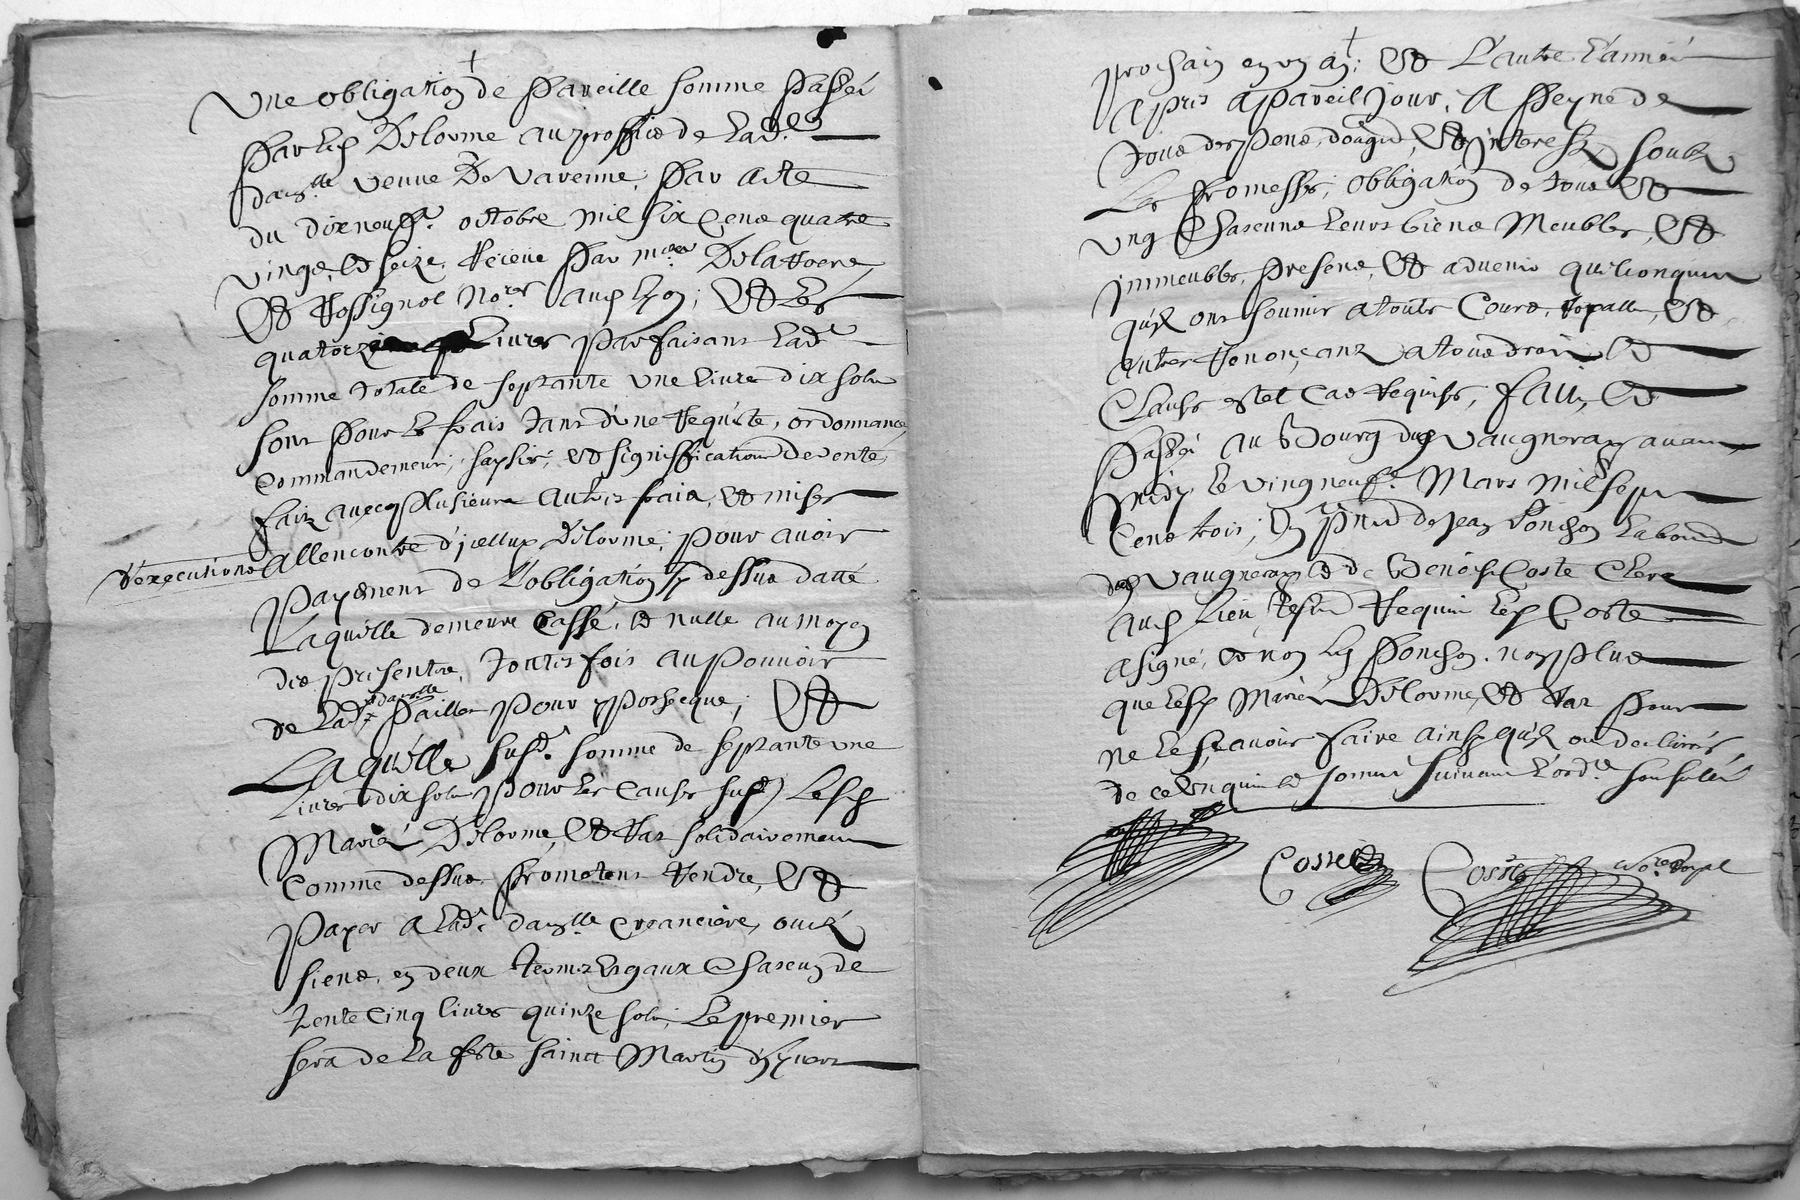 Une obligation de pareille somme passéé
par led Delorme au proffict de lad.e
dam.lle veuve De Varenne, par acte
du dixneuf.e octobre mil six cent quatre
vingt, et seize, receue par m.res Delafoere
et Rossignol No.res aud Lyon; et les
quatorze livres parfaisant lad.e
somme totale de septante une livre dix sols
sont pour les frais tant d'une requeste, ordonnance,
commandement, saysie, et signiffication de vente,
faitz avecq plusieurs autres frais, et mises
d'exécutions allencontre d'jceux Delorme, pour avoir
payement de l'obligation sy dessus datté
Laquelle demeure cassé, et nulle au moyen
des presentes, touttes fois au pouvoir
de lad.e dam.lle Paillet pour ypothecque; et
Laquelle susd.e somme de septante une
livres dix sols pour les causes susd. lesd
Mariés Delorme, et Var solidairement
comme dessus, promettent rendre, et
payer a lad.e dam.lle creanciere, ou es
siens, en deux termes esgaux chascun de
trente cinq livres quinze sols, Le premier
sera de la feste sainct Martin d'hyvert
prochain en un an; et l'autre l'annéé
apres a pareil jour, A peyne de
tous despens, domages, et interestz, soubz
les promesses, obligation de tous et
ung chascuns leurs biens meubles, et
jmmeubles, presens, et advenir quelconques
qu'ils ont soumis a toutes cours, royalles, et
autres renonçant a tous droits, et
clauses et tel cas requises, fait, et
passéé au Bourg dud Vaugneray avant
midy le vingneuf.e Mars mil sept
cens trois, en pnce de Jean Ponchon laboureur
dud Vaugneray et de Benoist Coste clerc
aud lieu, tesmoins requis led Coste
a signé, et non led Ponchon, non plus
que lesd Mariés Delorme, et Var pour
ne le sçavoir faire ainsy qu'ils ont declarés,
de ce enquis et sommés suivant l'ord.ce consulés
Coste Coste No.re Royal